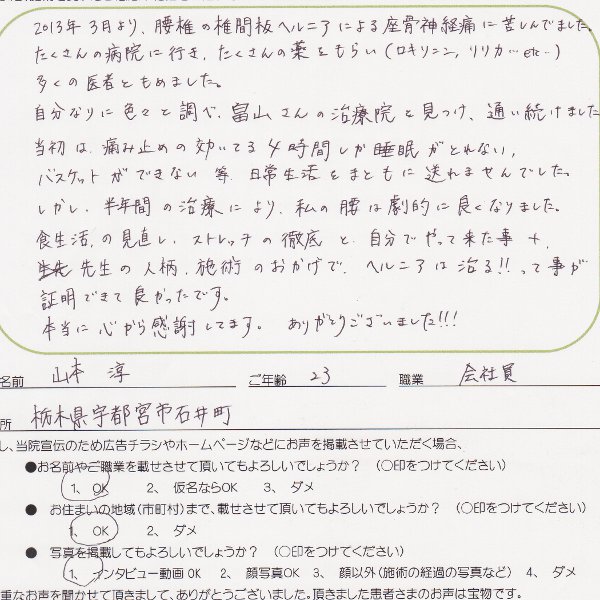 2013年3月より、腰椎の椎間板ヘルニアによる座骨神経痛に苦しんでました。
たくさんの病院に行き、たくさんの薬をもらい(ロキソニン、リリカ…etc…)
多くの医者ともめました。
自分なりに色々と調べ、畠山さんの治療院を見つけ、通い続けました
当初は、痛み止めの効いてる4時間しか睡眠がとれない、
バスケットができない等、日常生活をまともに送れませんでした。
しかし、半年間の治療により、私の腰は劇的に良くなりました。
食生活の見直し、ストレッチの徹底と、自分でやって来た事+、
先生の人柄、施術のおかげで、ヘルニアは治る!!って事が
証明できて良かったです。
本当に心から感謝してます。ありがとうございました!!!
名前 山本 淳 ご年齢 23 職業 会社員
所 栃木県宇都宮市石井町
し、当院宣伝のため広告チラシやホームページなどにお声を掲載させていただく場合、
●お名前やご職業を載せさせて頂いてもよろしいでしょうか? (○印をつけてください)
1、OK 2、仮名ならOK 3、ダメ
● お住まいの地域(市町村)まで、載せさせて頂いてもよろしいでしょうか? (○印をつけてください)
1、OK 2、ダメ
● 写真を掲載してもよろしいでしょうか? (○印をつけてください)
1、インタビュー動画OK 2、顔写真OK 3、顔以外(施術の経過の写真など) 4、ダメ
重なお声を聞かせて頂きまして、ありがとうございました。頂きました患者さまのお声は宝物です。